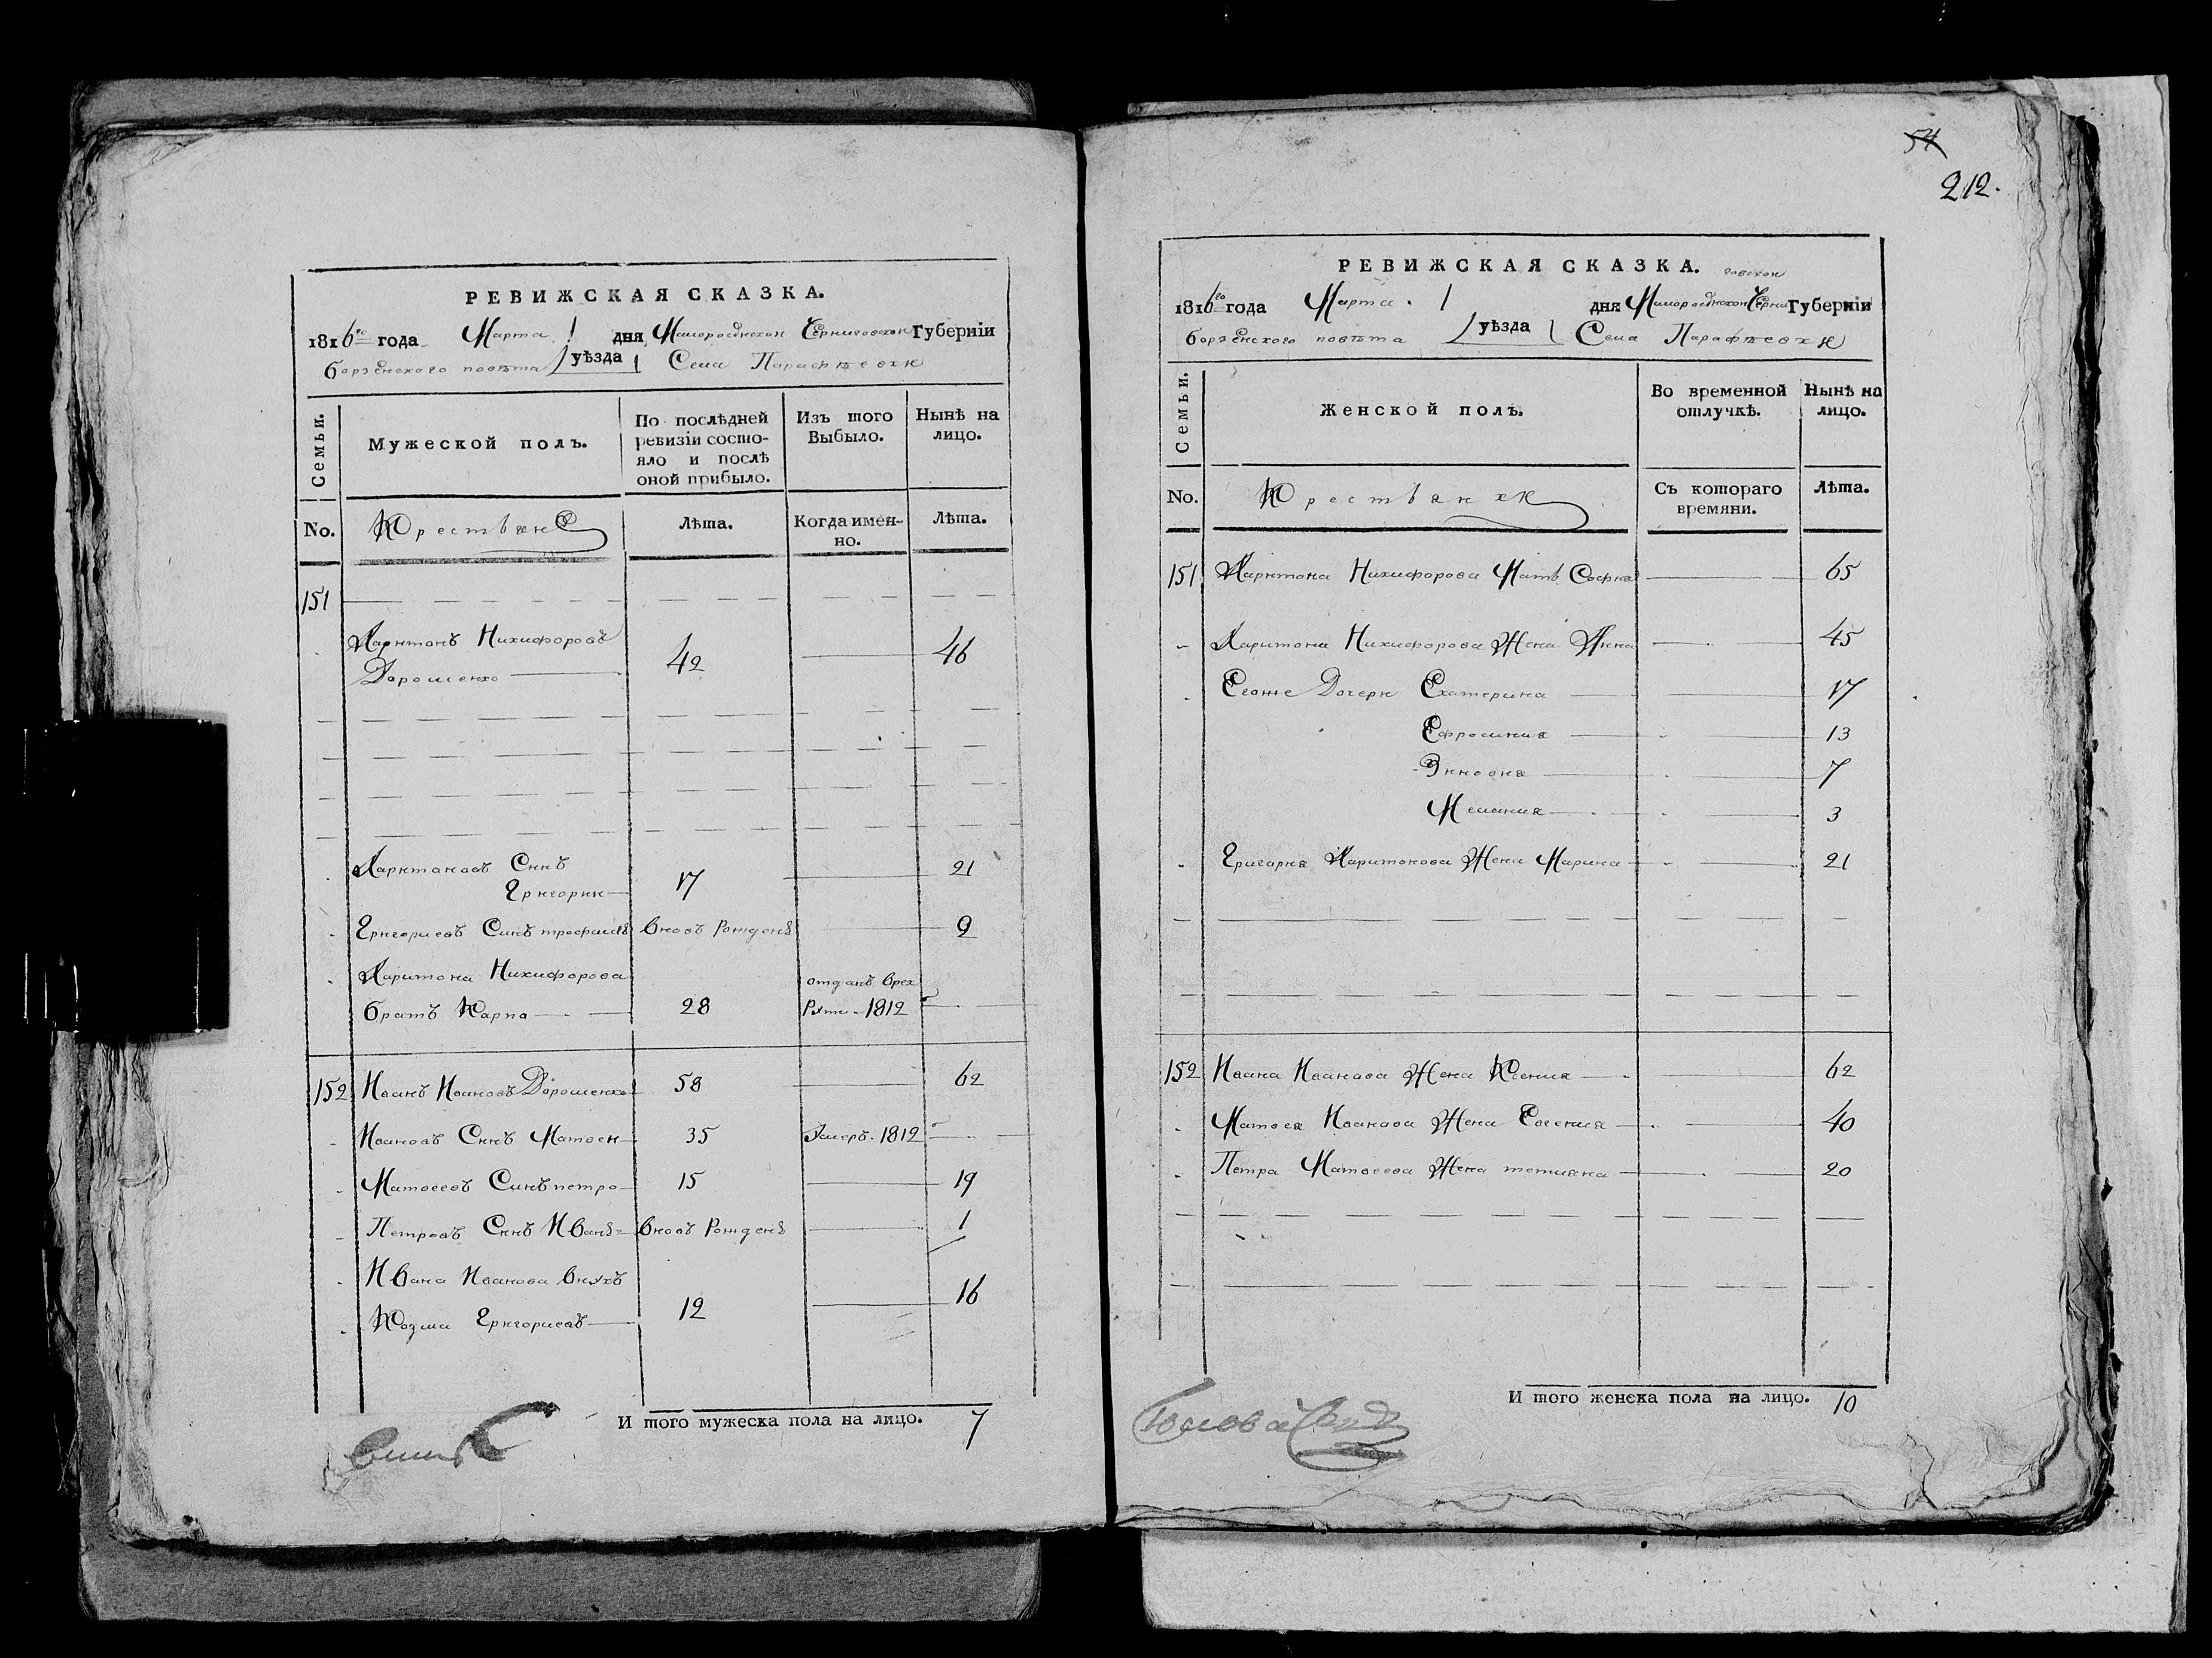 РЕВИЖСКАЯ СКАЗКА.
1816го года Марта 1 дня Малороссійской Черниговской Губерніи
борзенского повѣта уѣзда Села Парафѣевки
Семьи. Мужеской полъ. По послѣдней ревизіи состояло и послѣ оной прибыло. Изъ того Выбыло. Нынѣ на лицо.
No. Крестьяне Лѣта. Когда именно. Лѣта.
151
Харитонъ Никифоровъ
Дорошенко 42 46
Харитоновъ Синъ
Григорий 17 21
Григориевъ Синъ трофимъ вновь Рожденъ 2
Харитона Никифорова отданъ врек
братъ Карпо 28 Рути 1812
152 Иванъ Ивановъ Дорошенко 58 62
Ивановъ Синъ Матвей 35 Умеръ 1812
Матвеевъ Синъ петро 15 19
Петровъ Синъ Иванъ вновь Рожденъ 1
Ивана Иванова внукъ
Козма Григориевъ 12 16
И того мужеска пола на лицо. 7
54
212.
РЕВИЖСКАЯ СКАЗКА.
1816го года Марта 1 дня Малороссійской Черниговской Губерніи
борзенского повѣта уѣзда Села Парафѣевки
Семьи. Женской полъ. Во временной отлучкѣ. Нынѣ на лицо.
No. Крестьянки Съ котораго времяни. Лѣта.
151 Харитона Никифорова Мать София 65
Харитона Никифорова Жена Анна 45
Егоже Дочери Екатерина 17
Ефросиния 13
7
Мелания 3
Григория Харитонова Жена Марина 21
152 Ивана Иванова Жена Ксения 62
Матвея Иванова Жена Евгения 40
Петра Матвеева Жена тетияна 20
И того женска пола на лицо. 10